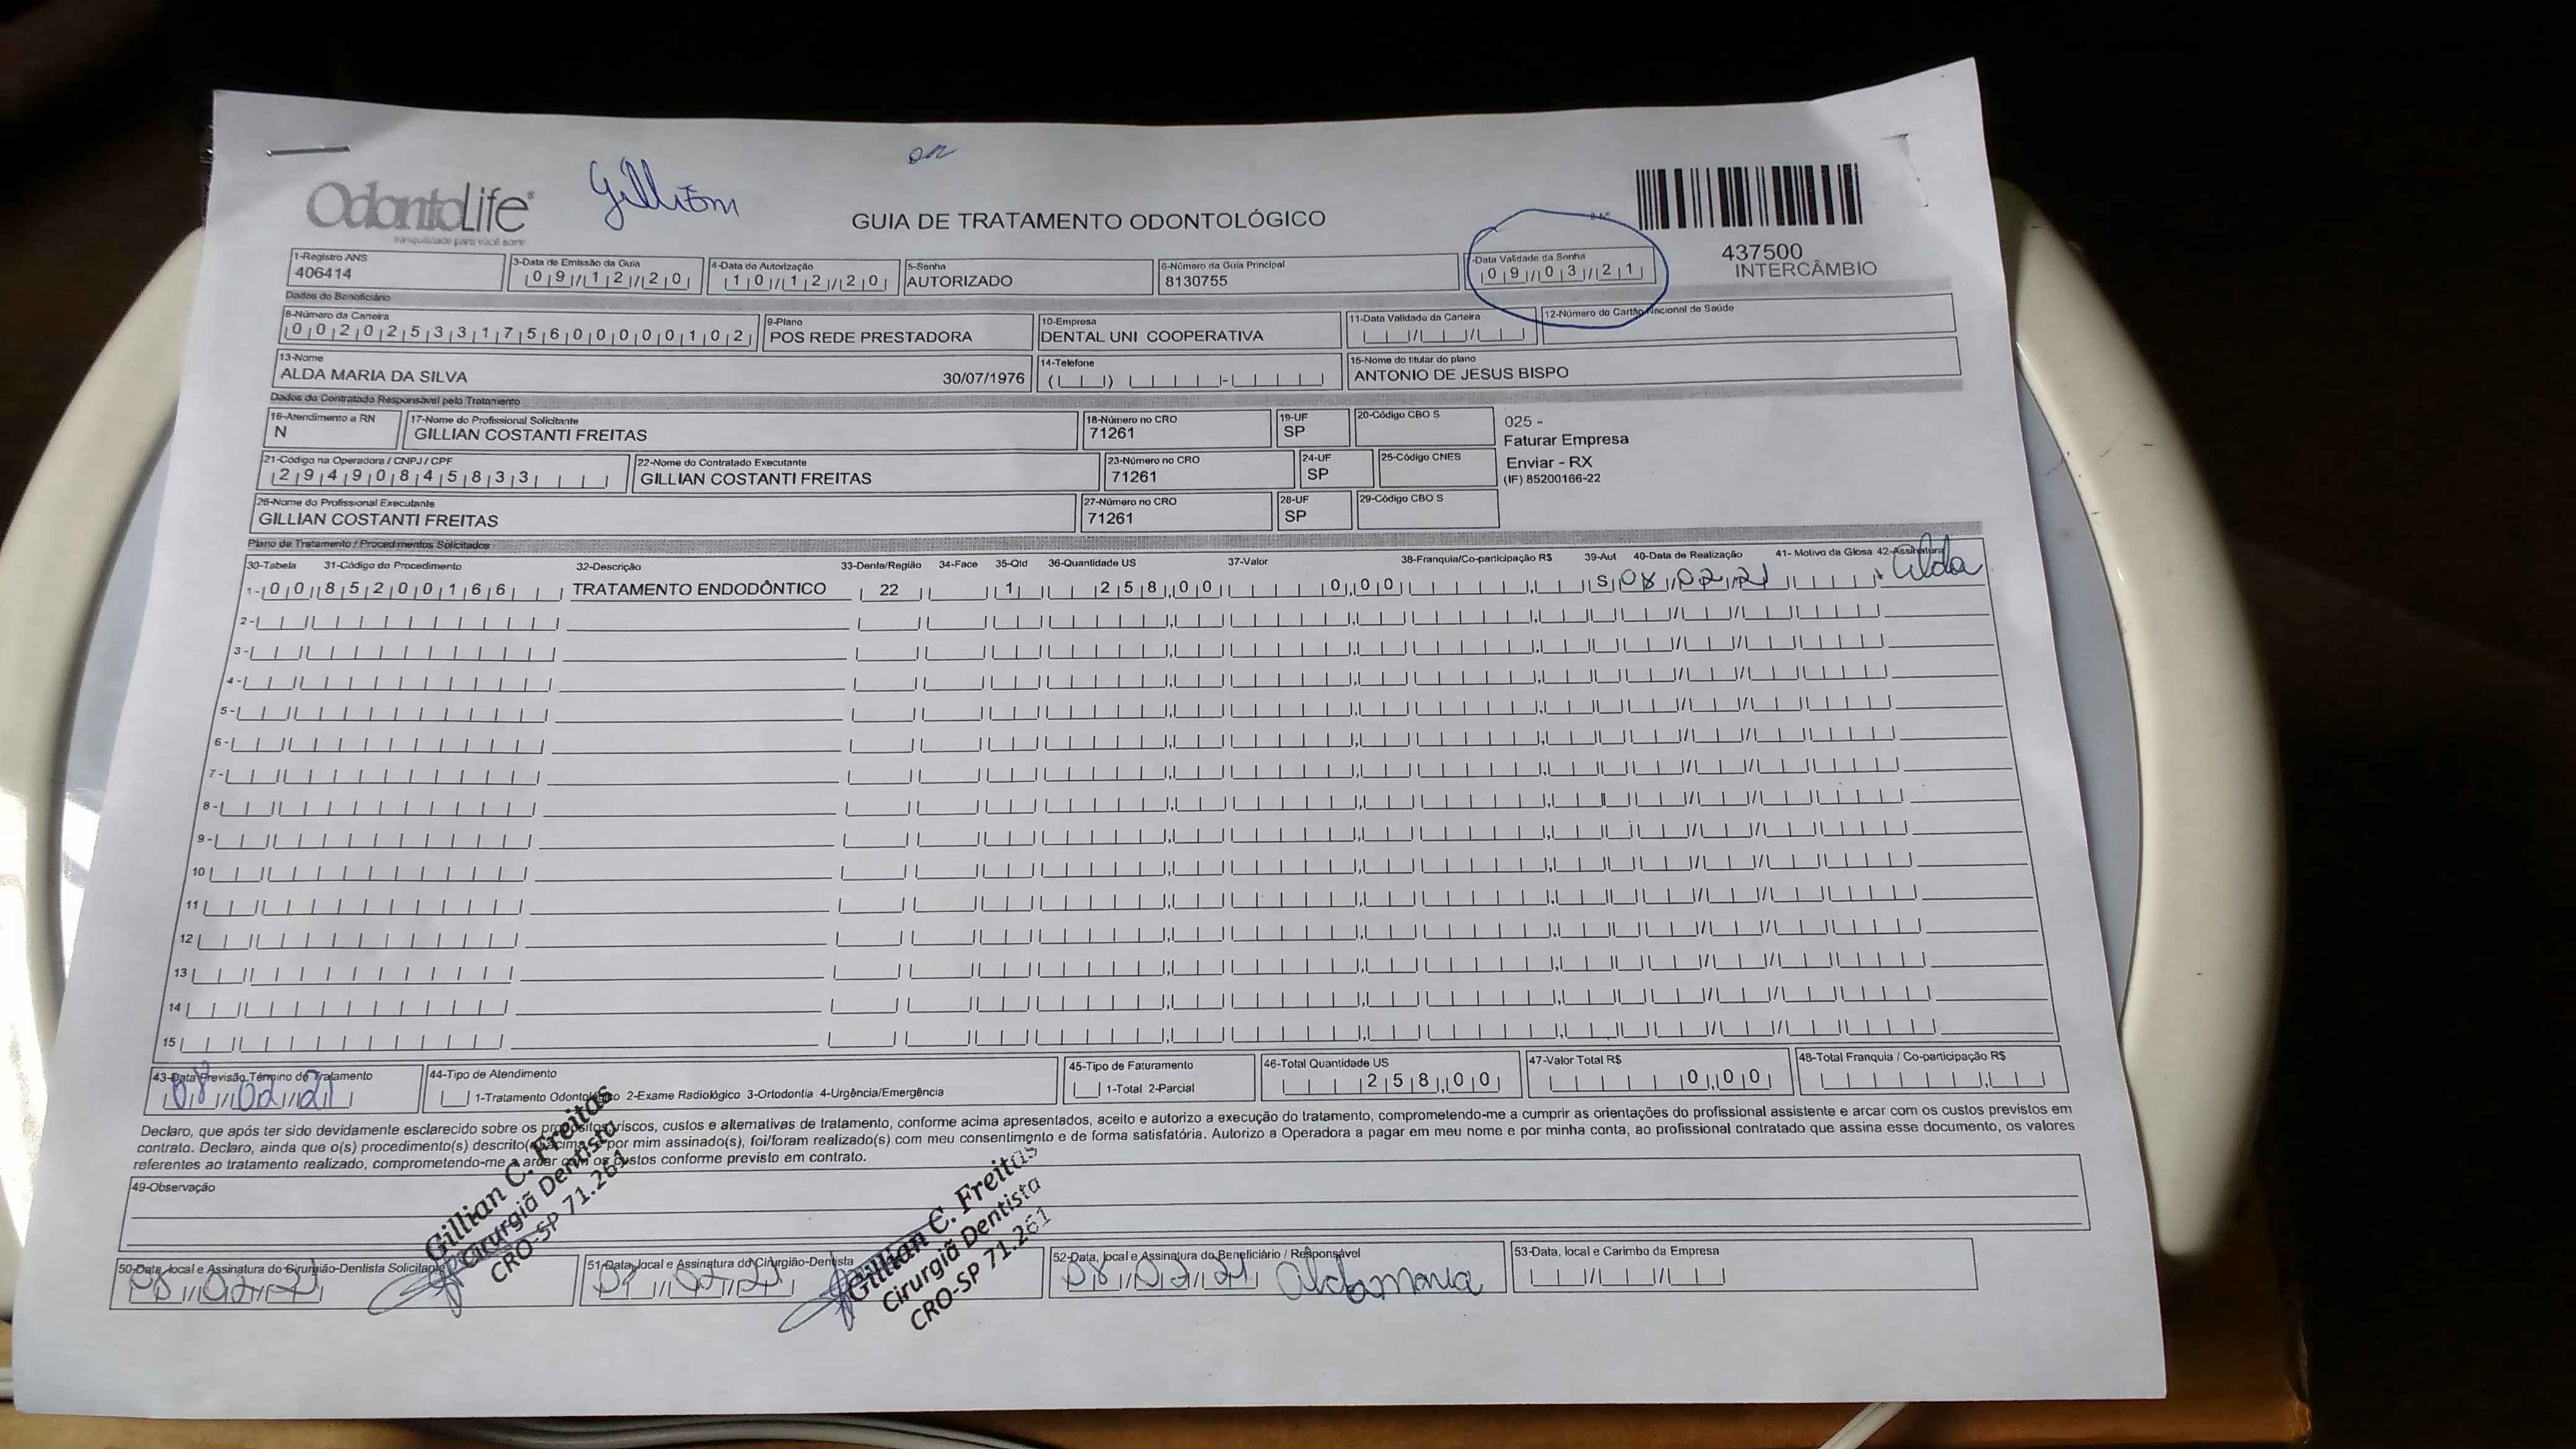 Gilliam
on
OdontoLife®
tranquilidade para você sorrir
GUIA DE TRATAMENTO ODONTOLÓGICO
2-Nº
437500
INTERCÂMBIO
1-Registro ANS 3-Data de Emissão da Guia 4-Data de Autorização 5-Senha 6-Número da Guia Principal -Data Validade da Senha
406414 09/12/20 10/12/20 AUTORIZADO 8130755 09/03/21
Dados do Beneficiário
8-Número da Carteira 9-Plano 10-Empresa 11-Data Validade da Carteira 12-Número do Cartão Nacional de Saúde
00202533175600000102 POS REDE PRESTADORA DENTAL UNI COOPERATIVA
13-Nome 14-Telefone 15-Nome do titular do plano
ALDA MARIA DA SILVA 30/07/1976 ANTONIO DE JESUS BISPO
Dados do Contratado Responsável pelo Tratamento
16-Atendimento a RN 17-Nome do Profissional Solicitante 18-Número no CRO 19-UF 20-Código CBO S
N GILLIAN COSTANTI FREITAS 71261 SP
025 -
Faturar Empresa
Enviar - RX
(IF) 85200166-22
21-Código na Operadora / CNPJ / CPF 22-Nome do Contratado Executante 23-Número no CRO 24-UF 25-Código CNES
29490845833 GILLIAN COSTANTI FREITAS 71261 SP
26-Nome do Profissional Executante 27-Número no CRO 28-UF 29-Código CBO S
GILLIAN COSTANTI FREITAS 71261 SP
Plano de Tratamento / Procedimentos Solicitados
30-Tabela 31-Código do Procedimento 32-Descrição 33-Dente/Região 34-Face 35-Qtd 36-Quantidade US 37-Valor 38-Franquia/Co-participação R$ 39-Aut 40-Data de Realização 41- Motivo da Glosa 42-Assinatura
1- 00 85200166 TRATAMENTO ENDODÔNTICO 22 1 258,00 0,00 S 08/02/21 Alda
2-
3-
4-
5-
6-
7-
8-
9-
10
11
12
13
14
15
43-Data Previsão Término do Tratamento 44-Tipo de Atendimento 45-Tipo de Faturamento 46-Total Quantidade US 47-Valor Total R$ 48-Total Franquia / Co-participação R$
08/02/21 1-Tratamento Odontológico 2-Exame Radiológico 3-Ortodontia 4-Urgência/Emergência 1-Total 2-Parcial 258,00 0,00
Declaro, que após ter sido devidamente esclarecido sobre os propósitos, riscos, custos e alternativas de tratamento, conforme acima apresentados, aceito e autorizo a execução do tratamento, comprometendo-me a cumprir as orientações do profissional assistente e arcar com os custos previstos em
contrato. Declaro, ainda que o(s) procedimento(s) descrito(s) acima, e por mim assinado(s), foi/foram realizado(s) com meu consentimento e de forma satisfatória. Autorizo a Operadora a pagar em meu nome e por minha conta, ao profissional contratado que assina esse documento, os valores
referentes ao tratamento realizado, comprometendo-me a arcar com os custos conforme previsto em contrato.
49-Observação
Gillian C. Freitas
Cirurgiã Dentista
CRO-SP 71.261
Gillian C. Freitas
Cirurgiã Dentista
CRO-SP 71.261
50-Data, local e Assinatura do Cirurgião-Dentista Solicitante 51-Data, local e Assinatura do Cirurgião-Dentista 52-Data, local e Assinatura do Beneficiário / Responsável 53-Data, local e Carimbo da Empresa
08/02/21 08/02/21 08/02/21 Alda maria